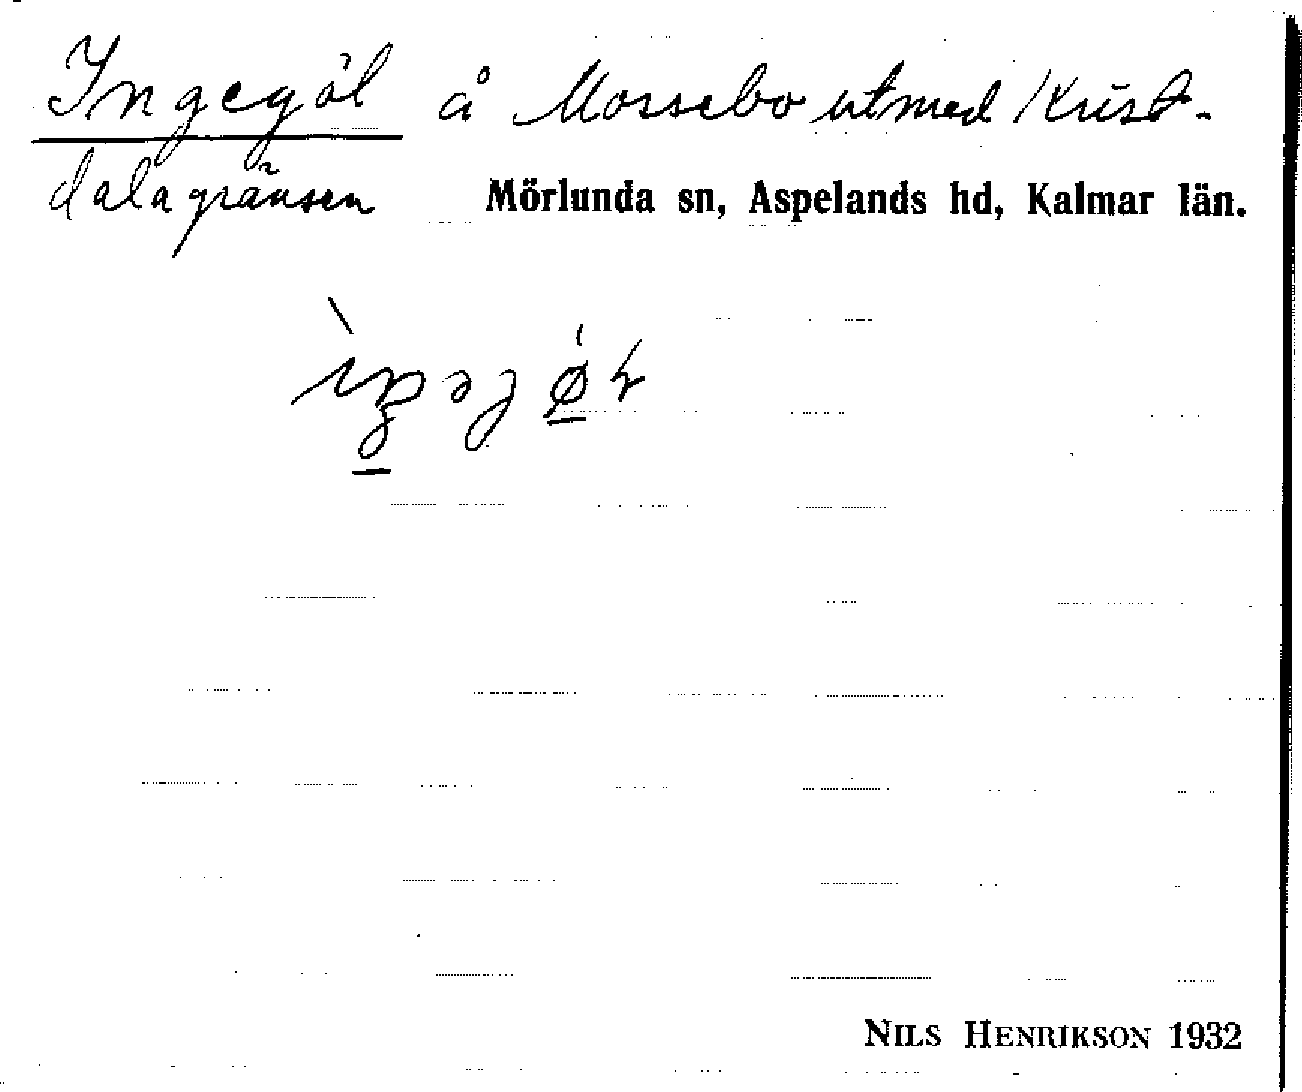 Ingegöl å Mossebo utmed Krist-
dalagränsen Mörlunda sn, Aspelands hd, Kalmar län.
NILS HENRIKSON 1932